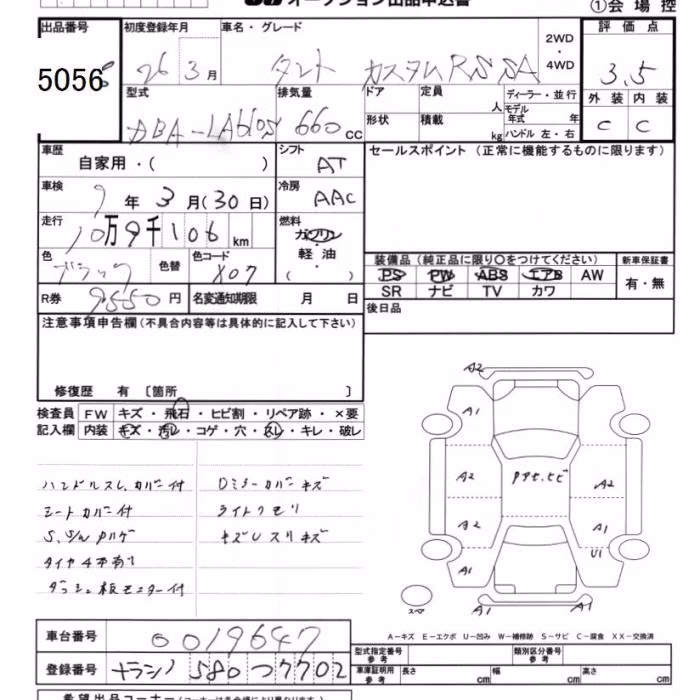 オークション出品申込書
①会場控
出品番号 初度登録年月 車名・グレード 2WD・4WD 評価点
5056 26 3月 タント カスタムRS SA 3.5
型式 排気量 ドア 定員 人 ディーラー・並行 外装 内装
DBA-LA610S 660cc 形状 積載 kg モデル年式 年 ハンドル 左・右 C C
車歴 シフト セールスポイント(正常に機能するものに限ります)
自家用・( ) AT
車検 冷房
9年3月(30日) AAC
走行 燃料
10万9千106km ガソリン・軽油・( )
色 ブラック 色替 色コード X07
装備品(純正品に限り○をつけてください) 新車保証書
PS PW ABS エアB AW 有・無
SR ナビ TV カワ
R券 9550円 名変通知期限 月 日
後日品
注意事項申告欄(不具合内容等は具体的に記入して下さい)
修復歴 有 〔箇所 〕
検査員 FW キズ・飛石・ヒビ割・リペア跡・×要
記入欄 内装 キズ・汚レ・コゲ・穴・スレ・キレ・破レ
ハンドルスレ、カバー付 Dミラーカバーキズ
シートカバー付 ライトクモリ
キズUスリキズ
ダッシュ板モニター付
A2
A1
A2 A2
A2 A1
U1
A1
A1 A1
A-キズ E-エクボ U-凹み W-補修跡 S-サビ C-腐食 XX-交換済
車台番号 0019647
型式指定番号 参考 類別区分番号 参考
登録番号 580 つ 7702
車庫証明用 参考 長さ cm 幅 cm 高さ cm
希望出品コーナー